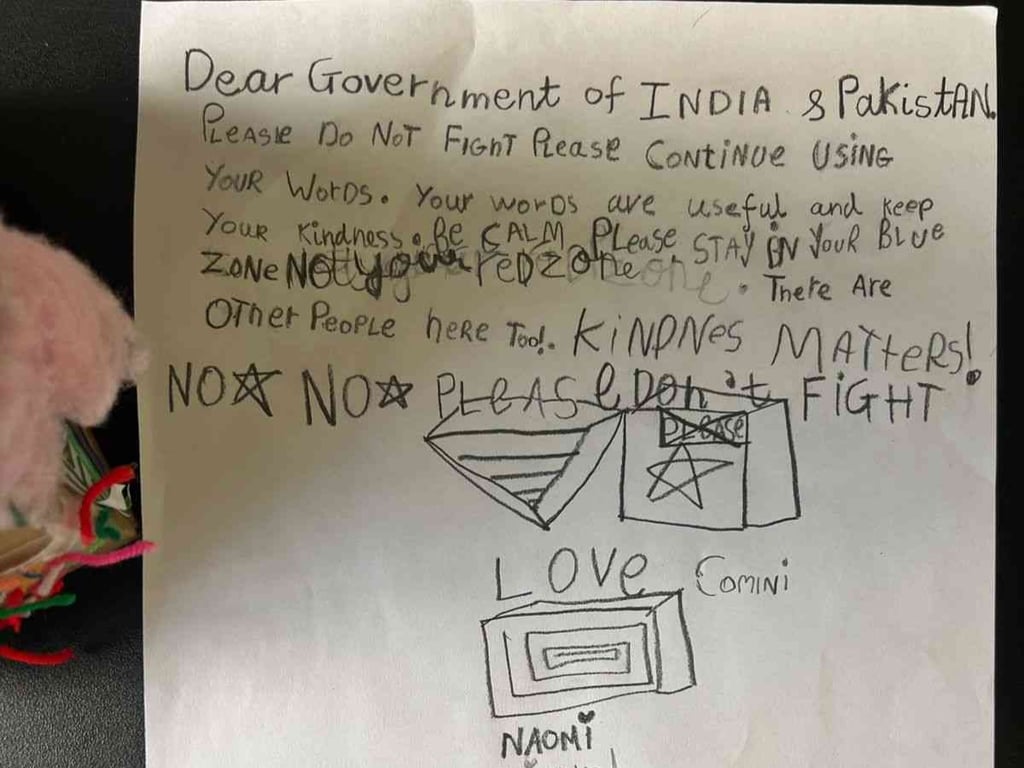 Dear Government of INDIA & PakistAN.
PLEASIE DO NOT FIGHT PLEASE CONTINUE USING
YOUR WORDS. Your words are useful and keep
YOUR kindness. Be CALM PLease STAY iN YouR BLUE
ZONE NOT your redzone. There Are
OTHer PEOPLE heRe Too!. KINDNes MATTeRs!
NO NO PLEASE DON't FIGHT
PLEASE
LOVe Comini
NAOMi